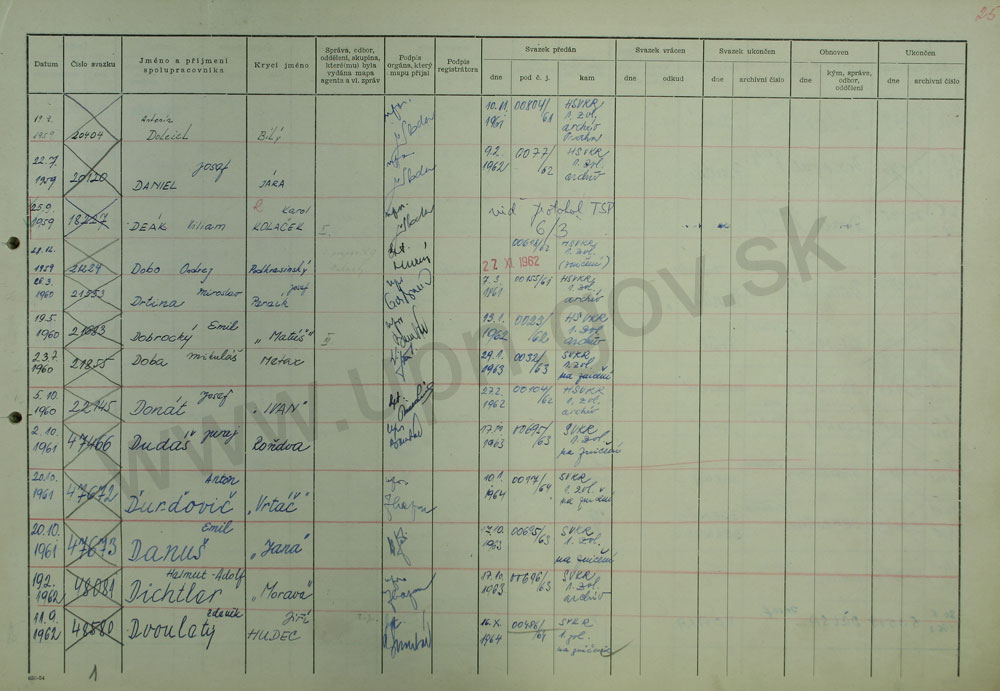 25
Datum Číslo svazku Jméno a příjmení spolupracovníka Krycí jméno Správa, odbor, oddělení, skupina, které(mu) byla vydána mapa agenta a vl. zpráv Podpis orgána, který mapu přijal Podpis registrátora Svazek předán Svazek vrácen Svazek ukončen Obnoven Ukončen
dne pod č. j. kam dne odkud dne archivní číslo dne kým, správa, odbor, oddělení dne archivní číslo
1959 20404 Antonín Doleich Bílý 10.VI. 1961 00804/61 HSVKR 1. zvl. archiv Praha
22.7. 1959 20120 Josef DANIEL JÁRA 9.2. 1962 0077/62 HSVKR 1. zvl. archiv
25.9. 1959 18227 DEÁK Viliam Karol KOLAČEK I. viď protokol TSP 6/3
1959 21224 Dobo Ondrej Podkrasinský 22 XI. 1962 HSVKR 1. zvl. (zničení)
26.3. 1960 21533 Drtina Miroslav Josef 7.3. 1961 00155/61 HSVKR 1. zvl. archiv
19.5. 1960 21683 Dobrocký Emil „Matúš" III 13.1. 1962 0023/62 HSVKR 1. zvl. archiv
23.7. 1960 21855 Doba Mikuláš Metax 29.1. 1963 0032/63 SVKR 1. zvl. na zničení
5.10. 1960 22145 Donát Josef „IVAN" 27.2. 1962 00104/62 HSVKR 1. zvl. archiv
2.10. 1961 47466 Dudáš Juraj Roždva 17.10. 1963 00695/63 SVKR 1. zvl. na zničení
20.10. 1961 47672 Anton Ďurďovič „Vrtáč" 10.1. 1964 0017/64 SVKR 1. zvl. na zničení
20.10. 1961 47673 Emil Danuš „Jana" 17.10. 1963 00695/63 SVKR 1. zvl. na zničení
19.2. 1962 48081 Helmut-Adolf Dichtler „Morava" 17.10. 1963 00696/63 SVKR 1. zvl. archiv
11.9. 1962 48580 Zdeněk Dvoulatý Jiří HUDEC 16.X. 1964 00486/64 SVKR 1. zvl. na zničení
1
www.upn.gov.sk